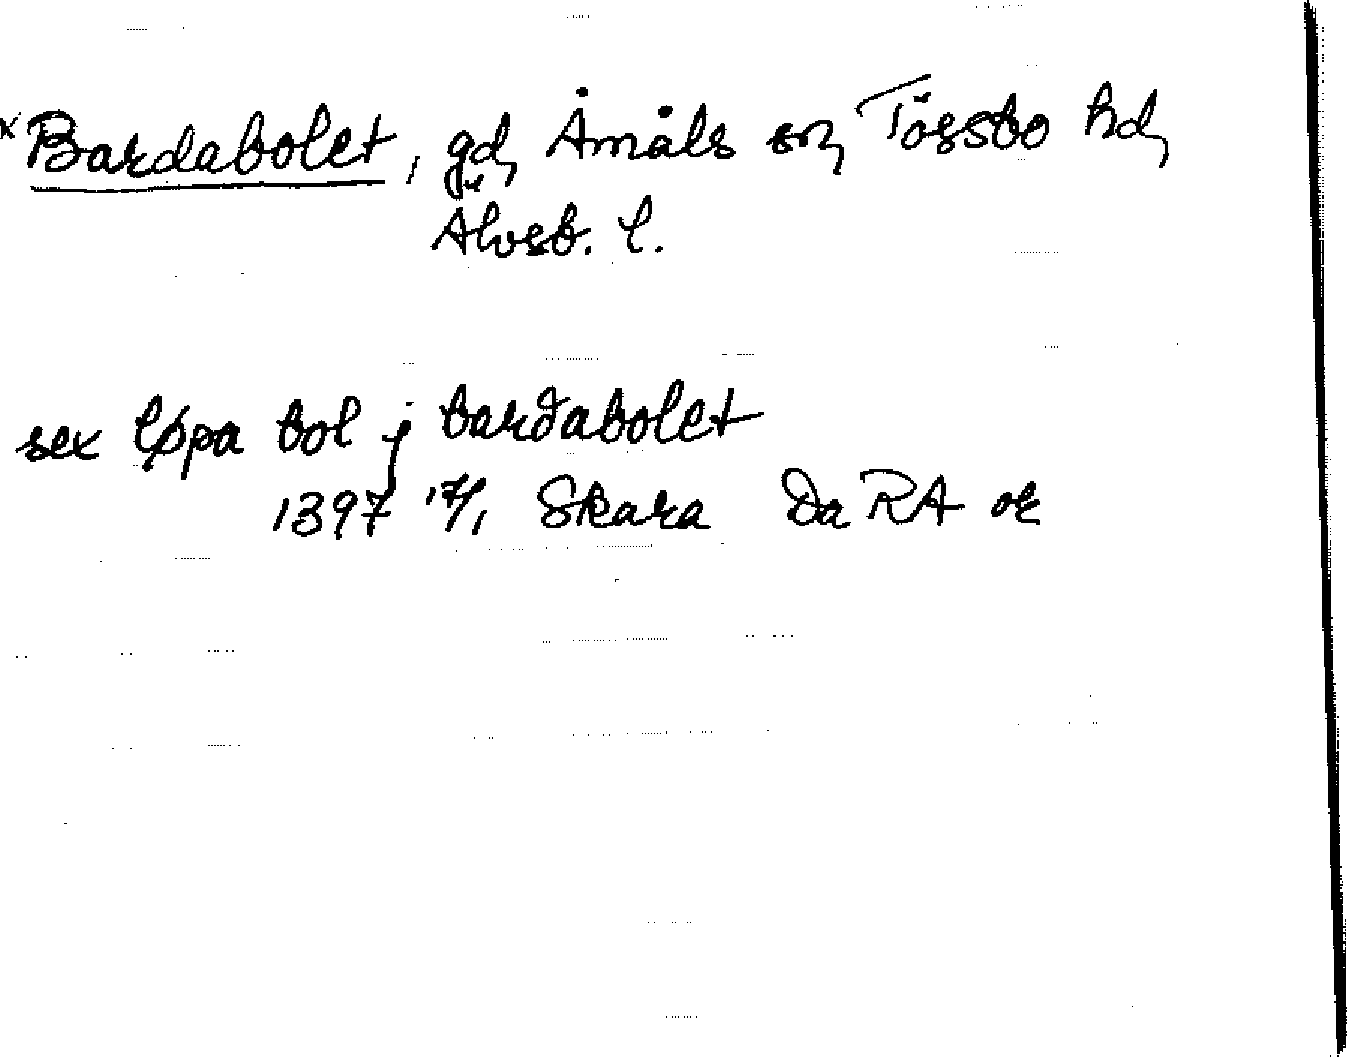 x Bardabolet, gd, Åmåls sn, Tössbo hd,
Älvsb. l.
sex løpa bol j bardabolet
1397 17/1 Skara Da RA or